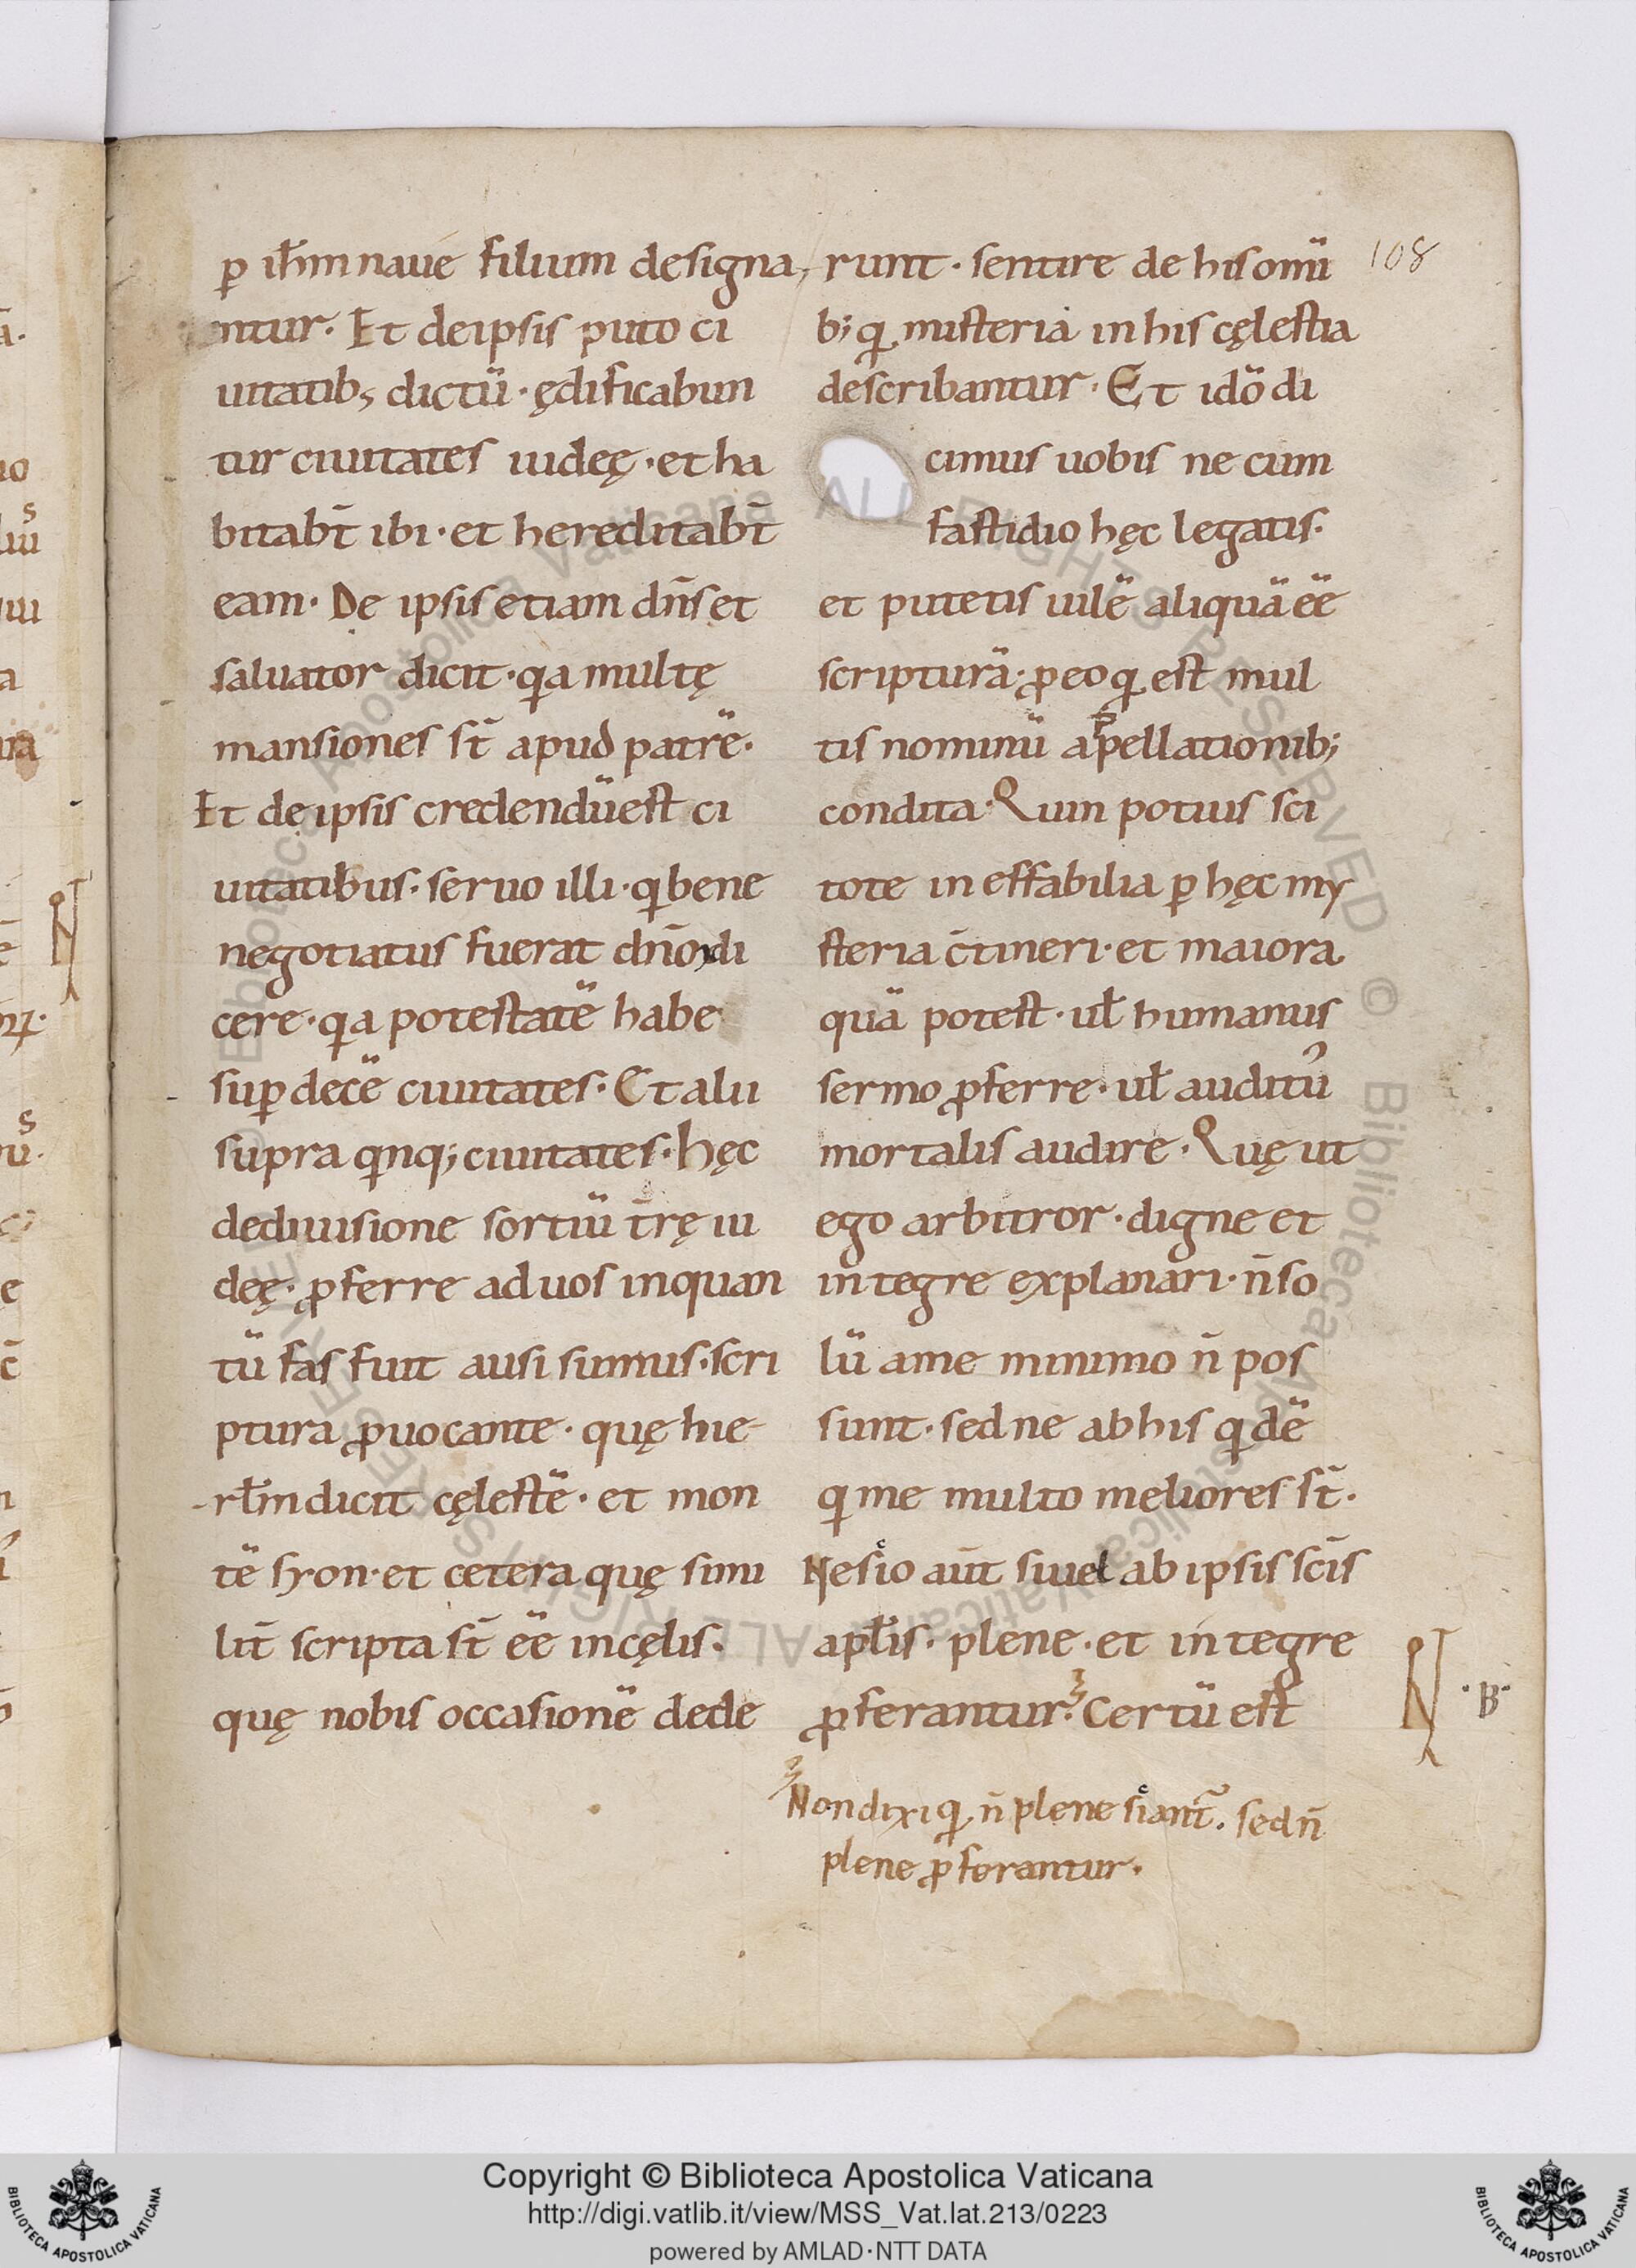 ꝑ ih̅m naue filium designa,
ntur. Et de ipsis puto ci
uitatib; dictū. ędificabun
tur ciuitates iudeę. et ha
bitabt̄ ibi. et hereditabt̄
eam. De ipsis etiam dn̄s et
saluator dicit. qa multę
mansiones st̄ apud patrē.
Et de ipsis credendū est ci
uitatibus. seruo illi. qi bene
negotiatus fuerat dn̄o di
cere. qa potestatē habe
suꝑ decē ciuitates. Et alii
supra qinq; ciuitates. Hęc
de diuisione sortiū t̄rę iu
deę. ꝓferre ad uos inquan
tū fas fuit ausi sumus. scri
ptura ꝓuocante. quę hie-
-rl̄m dicit cęlestē. et mon
tē syon. et cetera quę simi
lit̄ scripta st̄ ēē in cęlis.
quę nobis occasionē dede
runt. sentire de his omī
b; ꝙ misteria in his cęlestia
describantur. Et idō di
cimus uobis ne cum
fastidio hęc legatis.
et putetis uilē aliquā ēē
scripturā. ꝓ eo ꝙ est mul
tis nominū appellationib;
condita. Quin potius sci
tote ineffabilia ꝑ hęc my
steria c̄tineri. et maiora
quā potest. ul̄ humanus
sermo ꝓferre. ul̄ auditu᾽
mortalis audire. Quę ut
ego arbitror. digne et
integre explanari. n̄ so
lū a me minimo n̄ pos
sunt. sed ne ab his qidē
qi me multo meliores st̄.
Nesio aut̄ si uel ab ipsis scīs
apl̄is. plene. et integre
ꝓferantur. Certū est
Non dixi ꝙ n̄ plene siant᷑. sed n̄
plene ꝓferantur.
108
.B.
Copyright © Biblioteca Apostolica Vaticana
http://digi.vatlib.it/view/MSS_Vat.lat.213/0223
powered by AMLAD·NTT DATA
BIBLIOTECA APOSTOLICA VATICANA
BIBLIOTECA APOSTOLICA VATICANA